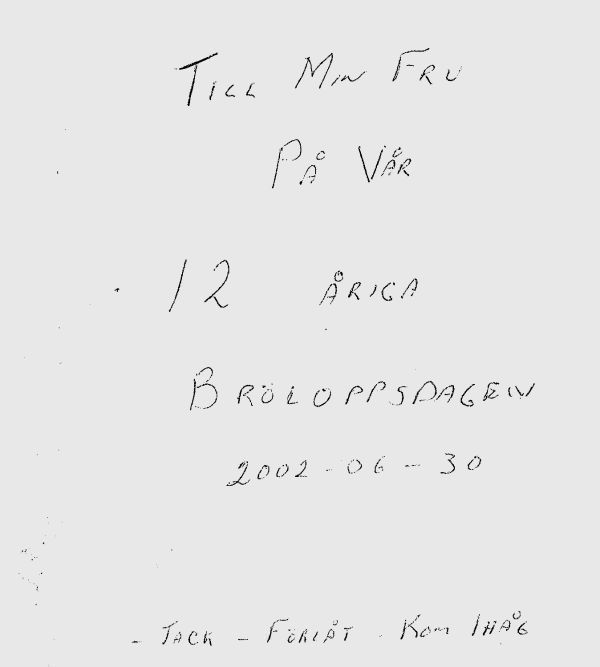 TILL MIN FRU
PÅ VÅR
12 ÅRIGA
BRÖLOPPSDAGEN
2002-06-30
- TACK - FÖRLÅT . KOM IHÅG